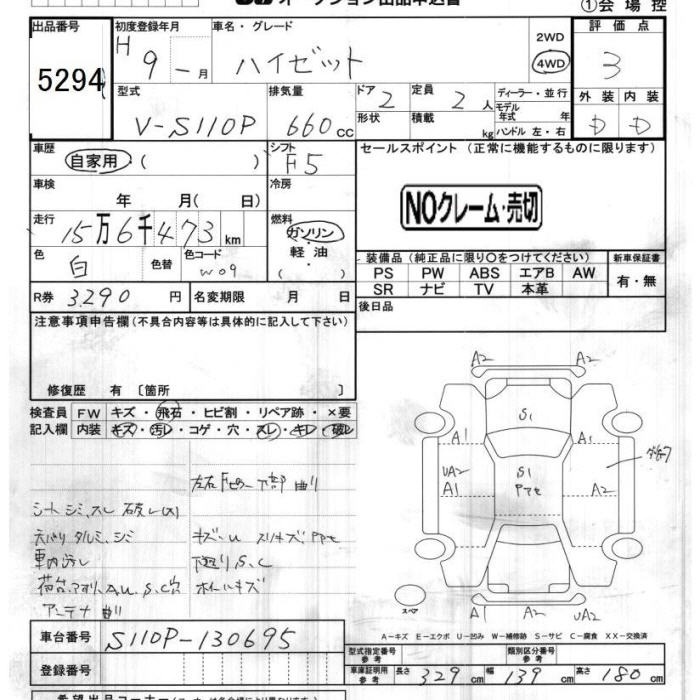 オークション出品申込書
①会場控
出品番号 初度登録年月 車名・グレード 評価点
5294 H 9 - 月 ハイゼット 2WD 4WD 3
型式 排気量 ドア 2 定員 2 人 ディーラー・並行 外装 内装
V-S110P 660 cc 形状 積載 kg モデル年式 年 ハンドル 左・右 D D
車歴 自家用・( ) シフト F5 セールスポイント (正常に機能するものに限ります)
車検 年 月( 日) 冷房
NOクレーム・売切
走行 15万6千473 km 燃料 ガソリン・軽油・( )
色 白 色替 色コード W09 装備品 (純正品に限り○をつけてください) 新車保証書
PS PW ABS エアB AW 有・無
SR ナビ TV 本革
R券 3,290 円 名変期限 月 日 後日品
注意事項申告欄(不具合内容等は具体的に記入して下さい)
修復歴 有 [箇所 ]
検査員 FW キズ・飛石・ヒビ割・リペア跡・×要
記入欄 内装 キズ・汚レ・コゲ・穴・スレ・キレ・破レ
左右Fピラー下部曲り
シートシミ、スレ破レ(大)
天バリタルミ、シミ キズ・U スリキズ、Pイセ
車内汚レ 下廻りS、C
荷台、アオリ、A、U、S、C穴 ホイールキズ
アンテナ曲り
A2 A2
S1
A1 A1
UA2 S1
A1 Pイセ A1
スペア
A1 A2 UA2
A－キズ E－エクボ U－凹み W－補修跡 S－サビ C－腐食 XX－交換済
車台番号 S110P-130695 型式指定番号 参考 類別区分番号 参考
登録番号 車庫証明用 参考 長さ 329 cm 幅 139 cm 高さ 180 cm